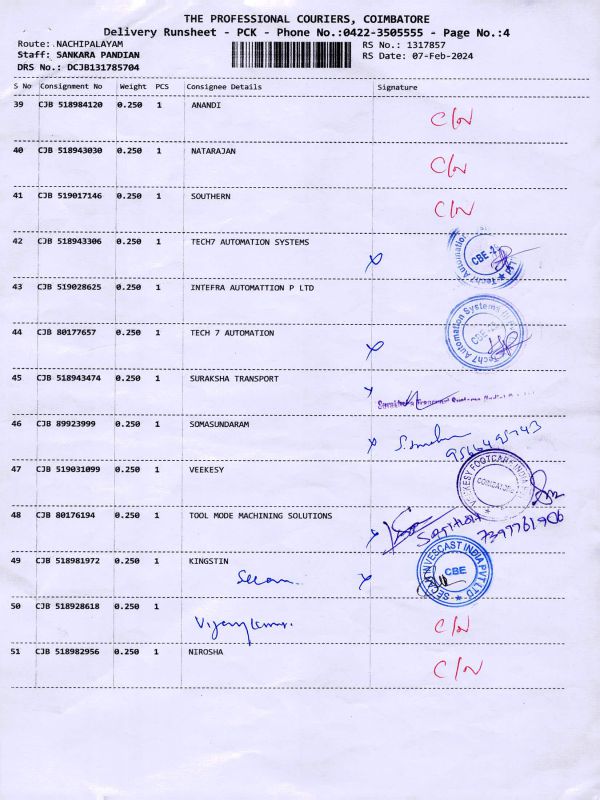 THE PROFESSIONAL COURIERS, COIMBATORE
Delivery Runsheet - PCK - Phone No.:0422-3505555 - Page No.:4
Route: NACHIPALAYAM RS No.: 1317857
Staff: SANKARA PANDIAN RS Date: 07-Feb-2024
DRS No.: DCJB131785704
S No Consignment No Weight PCS Consignee Details Signature
39 CJB 518984120 0.250 1 ANANDI C/N
40 CJB 518943030 0.250 1 NATARAJAN C/N
41 CJB 519017146 0.250 1 SOUTHERN C/N
42 CJB 518943306 0.250 1 TECH7 AUTOMATION SYSTEMS Tech7 Automation CBE
43 CJB 519028625 0.250 1 INTEFRA AUTOMATTION P LTD
44 CJB 80177657 0.250 1 TECH 7 AUTOMATION Tech7 Automation Systems CBE
45 CJB 518943474 0.250 1 SURAKSHA TRANSPORT
46 CJB 89923999 0.250 1 SOMASUNDARAM
47 CJB 519031099 0.250 1 VEEKESY VEEKESY FOOTCARE INDIA COIMBATORE
48 CJB 80176194 0.250 1 TOOL MODE MACHINING SOLUTIONS 7397761906
49 CJB 518981972 0.250 1 KINGSTIN INVESCAST INDIA PVT LTD CBE
50 CJB 518928618 0.250 1 Vijaykumar. C/N
51 CJB 518982956 0.250 1 NIROSHA C/N